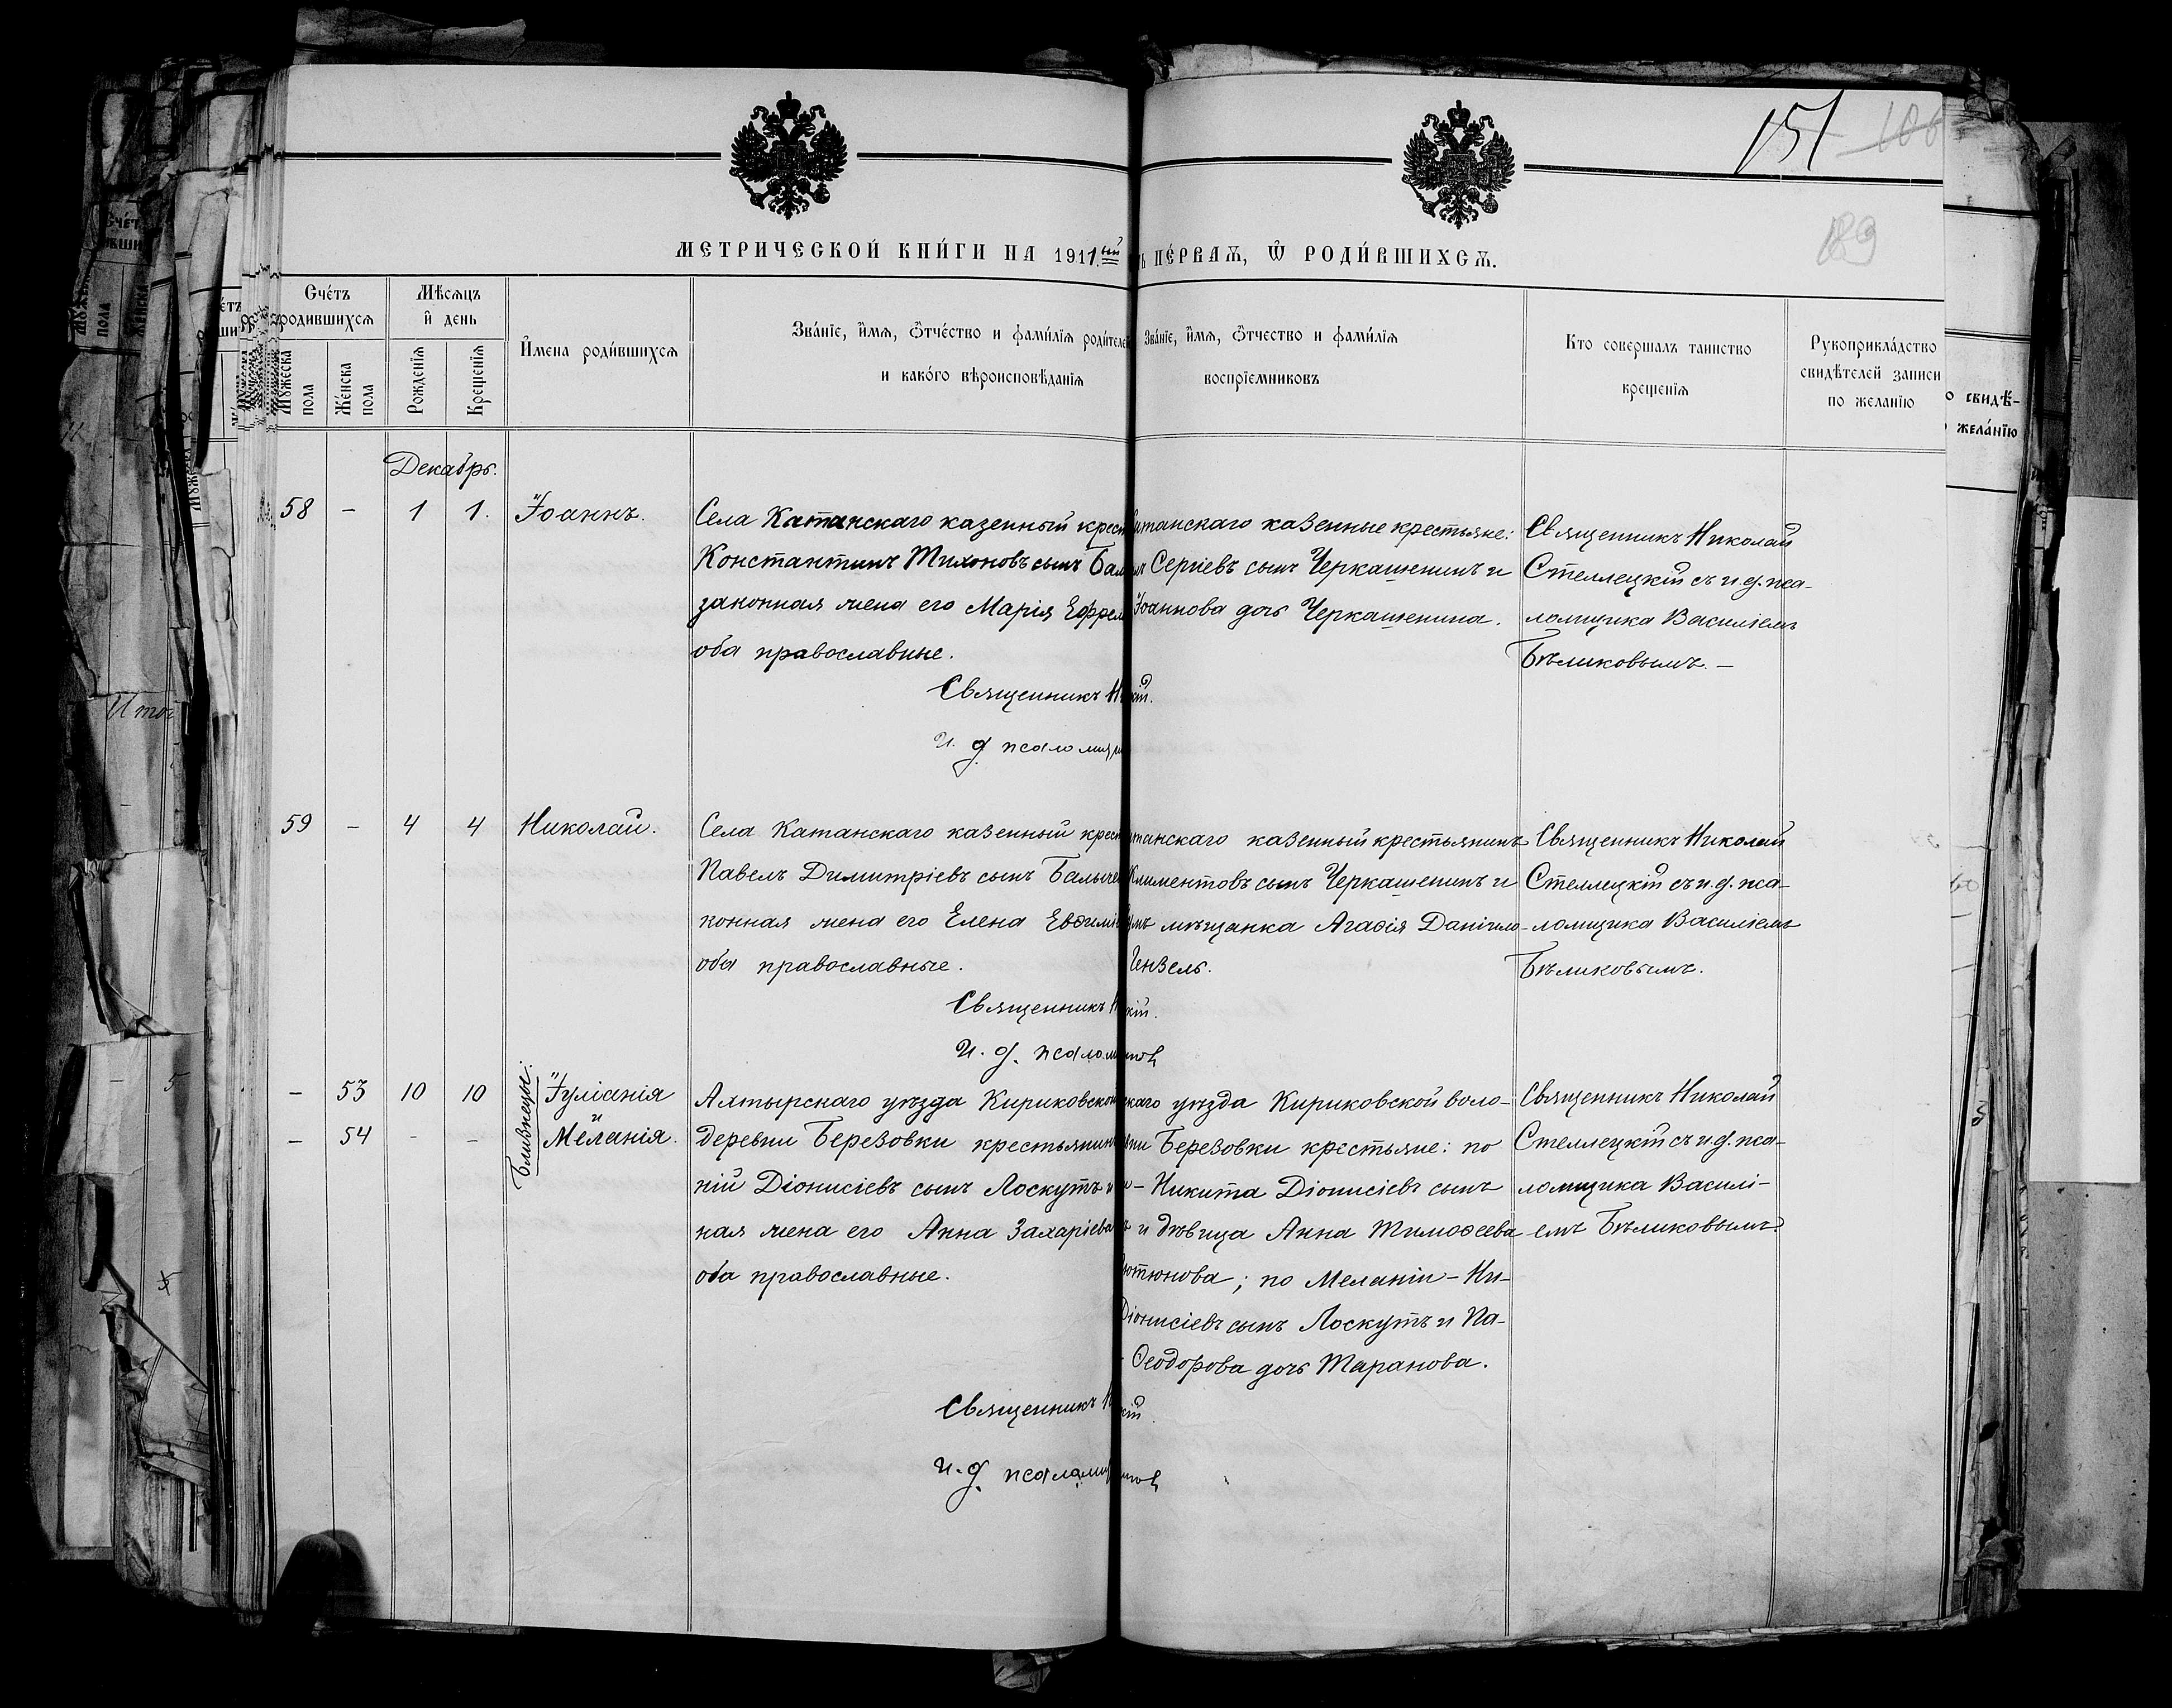 151 106
189
МЕТРИЧЕСКОЙ КНИ́ГИ НА 1911ый
ПЕ́РВАѦ, Ѿ РОДИ́ВШИХСѦ.
Счётъ родившихсѧ
Мѣсѧцъ и҆ день
И҆мена роди́вшихсѧ
Зва́нїе, и҆́мѧ, ѻ҆тче́ство и фами́лїѧ роди́телей
и како́го вѣроисповѣ́данїѧ
Зва́нїе, и҆́мѧ, ѻ҆тчество и фами́лїѧ
воспрїемниковъ
Кто совершалъ таинство
крещенїѧ
Рукоприкла́дство
свидѣтелей записи
по желанїю
Мꙋжеска пола
Же́нска пола
Рожденїѧ
Крещенїѧ
Декабрь.
58 – 1 1. Іоаннъ.
Села Катанскаго казенный крест
Константинъ Тихоновъ сынъ Бал
законная жена его Марія Ефрем
оба православные.
Священникъ Н
и. д. псаломщи
танскаго казенные крестьяне:
Сергіевъ сынъ Черкашенинъ и
Іоаннова дочь Черкашенина.
кій.
Священникъ Николай
Стеллецкій съ и. д. пса-
ломщика Василіемъ
Бѣликовымъ. –
59 – 4 4 Николай.
Села Катанскаго казенный крест
Павелъ Димитріевъ сынъ Балыче
конная жена его Елена Евѳимі
оба православные.
Священникъ Н
И. д. псалом
танскаго казенный крестьянинъ
Климентовъ сынъ Черкашенинъ и
мѣщанка Агаѳія Даніило-
Гензель.
кій.
ковъ
Священникъ Николай
Стеллецкій съ и. д. пса-
ломщика Василіемъ
Бѣликовымъ.
– 53 10 10 Близнецы: Іуліанія
и
– 54 - - Меланія.
Ахтырскаго уѣзда Кириковской
деревни Березовки крестьянинъ
ній Діонисіевъ сынъ Лоскутъ и
ная жена его Анна Захаріева
оба православные.
Священникъ Н
и. д. псаломщ
скаго уѣзда Кириковской воло-
ни Березовки крестьяне: по
– Никита Діонисіевъ сынъ
и дѣвица Анна Тимоѳеева
ютюнова; по Меланіи – Ни-
Діонисіевъ сынъ Лоскутъ и Па-
Ѳеодорова дочь Таранова.
кій.
ковъ
Священникъ Николай
Стеллецкій съ и. д. пса-
ломщика Василі-
емъ Бѣликовымъ.